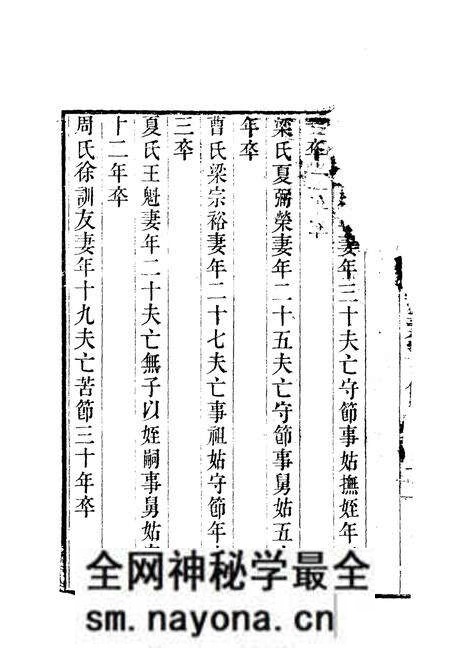 妻年三十夫亡守節事姑撫姪年
三卒
梁氏夏彌榮妻年二十五夫亡守節事舅姑五
年卒
曹氏梁宗裕妻年二十七夫亡事祖姑守節年
三卒
夏氏王魁妻年二十夫亡無子以姪嗣事舅姑
十二年卒
周氏徐訓友妻年十九夫亡苦節三十年卒
全网神秘学最全
sm.nayona.cn